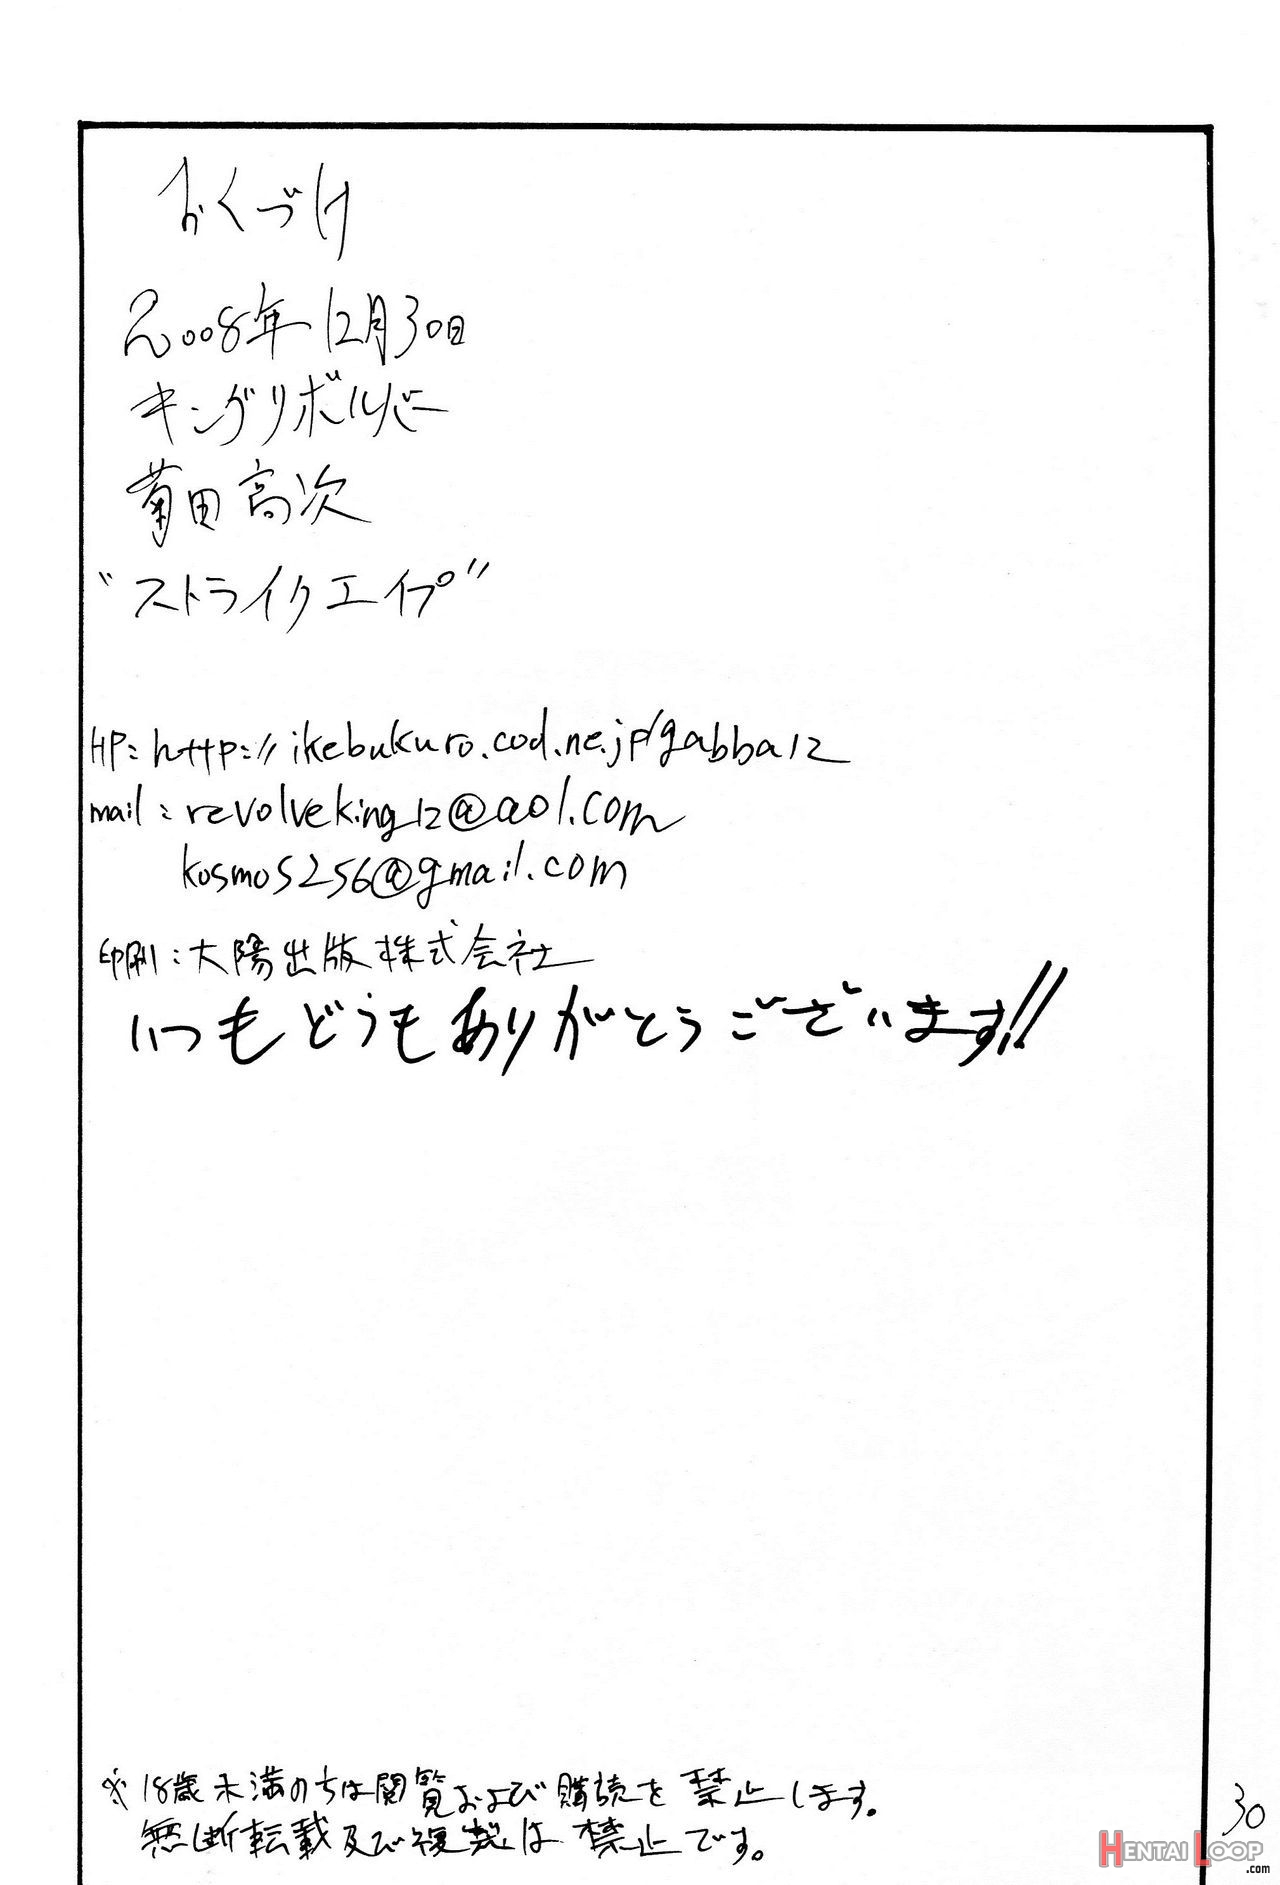 おくづけ
2008年12月30日
キングリボルバー
菊田高次
"ストライクエイプ"
HP:http://ikebukuro.cool.ne.jp/gabba12
mail:revolveking12@aol.com
kosmos256@gmail.com
印刷:大陽出版株式会社
いつもどうもありがとうございます!!
※18歳未満のちは閲覧および購読を禁止します。
無断転載及び複製は禁止です。
30
HENTAI LOOP
.com